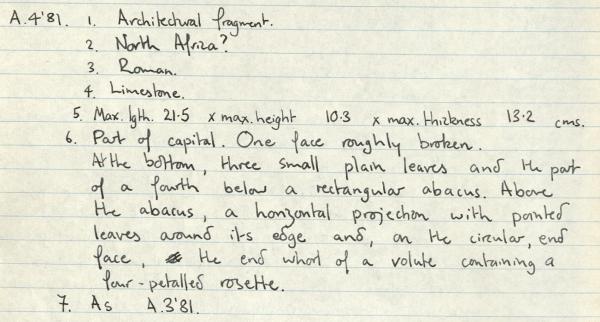 A.4'81. 1. Architectural fragment.
2. North Africa?
3. Roman.
4. Limestone.
5. Max. lgth. 21.5 x max. height 10.3 x max. thickness 13.2 cms.
6. Part of capital. One face roughly broken.
At the bottom, three small plain leaves and the part
of a fourth below a rectangular abacus. Above
the abacus, a horizontal projection with pointed
leaves around its edge and, on the circular, end
face, the end whorl of a volute containing a
four-petalled rosette.
7. As A.3'81.